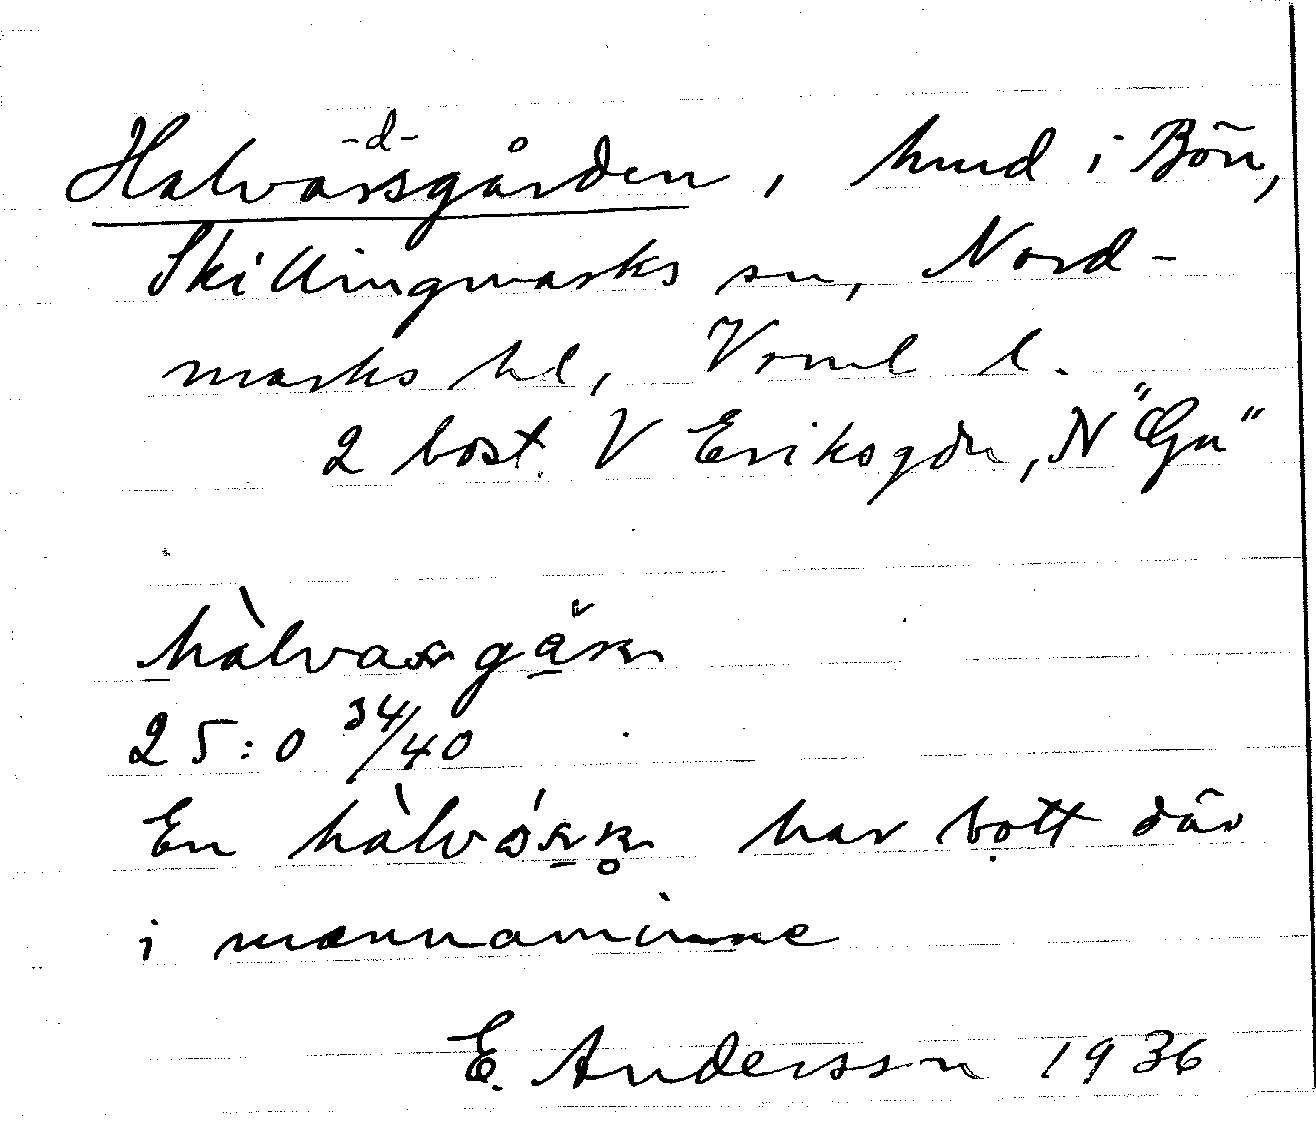 -d-
Halvarsgården, hmd i Bön,
Skillingmarks sn, Nord-
marks hd, Vrml l.
2 bost. V Eriksgdn, N "Gn"
hàlvar gäṛn
25:0 34/40
En hàlvárn har bott där
i mannaminne
E. Andersson 1936